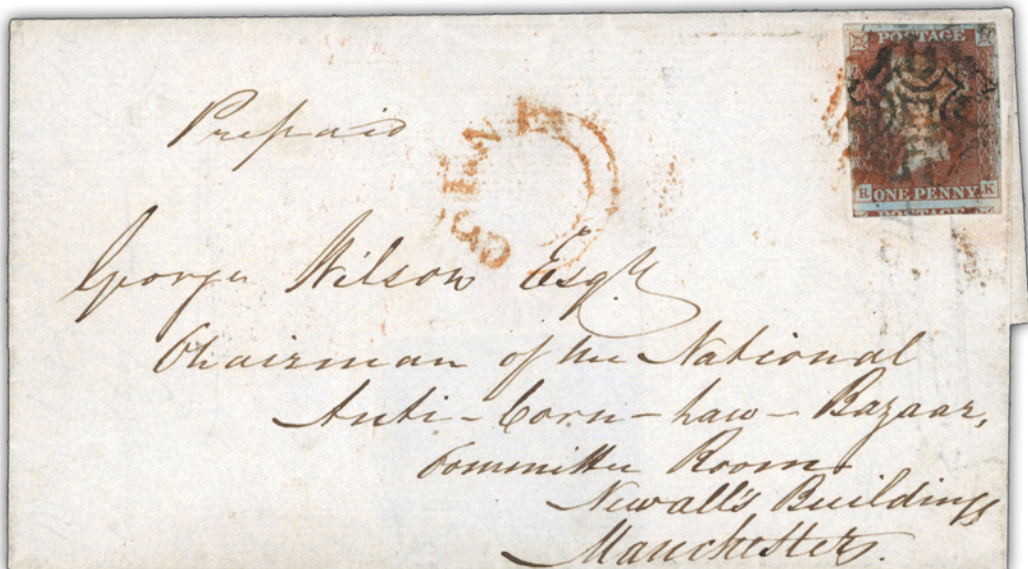 POSTAGE
R ONE PENNY K
POSTAGE
Prepaid
George Wilson Esqr
Chairman of the National
Anti-Corn-Law-Bazaar,
Committee Room
Newall's Buildings
Manchester.